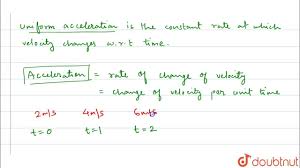 uniform acceleration is the constant rate at which
velocity changes w.r.t time.
Acceleration = rate of change of velocity
= change of velocity per unit time
2m/s 4m/s 6m/s
t=0 t=1 t=2
doubtnut